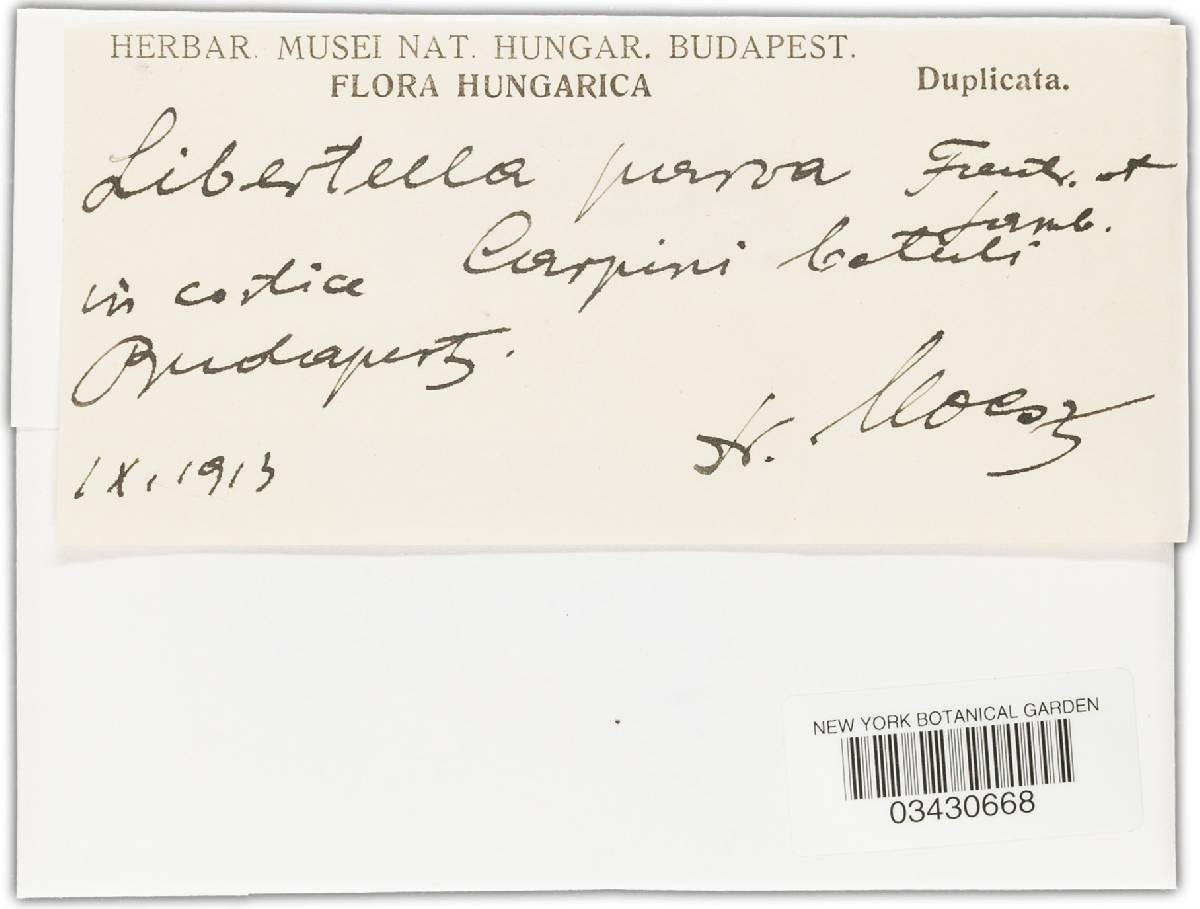 HERBAR. MUSEI NAT. HUNGAR. BUDAPEST.
FLORA HUNGARICA
Duplicata.
Libertella parva Frautr. et
Lamb.
in cortice Carpini betuli
Budapest.
Moesz
IX. 1913
NEW YORK BOTANICAL GARDEN
03430668